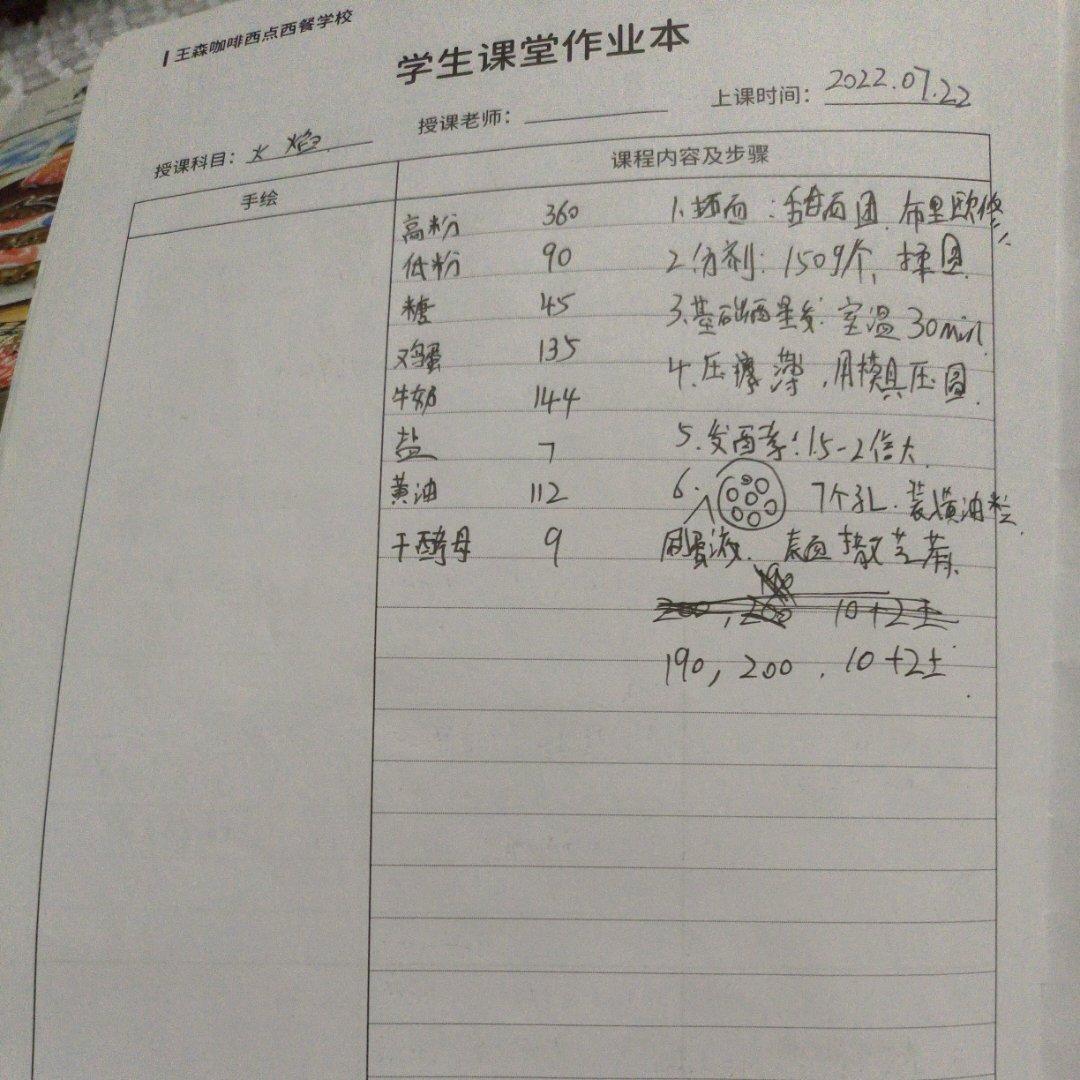 王森咖啡西点西餐学校
学生课堂作业本
授课科目：火焰 授课老师： 上课时间：2022.07.22
手绘 课程内容及步骤
高粉 360 1.打面：甜面团.布里欧修
低粉 90 2.分剂：150g/个，揉圆
糖 45 3.基础醒发：室温30min
鸡蛋 135 4.压擀薄，用模具压圆.
牛奶 144
盐 7 5.发酵：1.5-2倍大.
黄油 112 6. 7个孔.装黄油粒
干酵母 9 刷蛋液.表面撒芝麻.
190
200，200 10+2±
190，200，10+2±